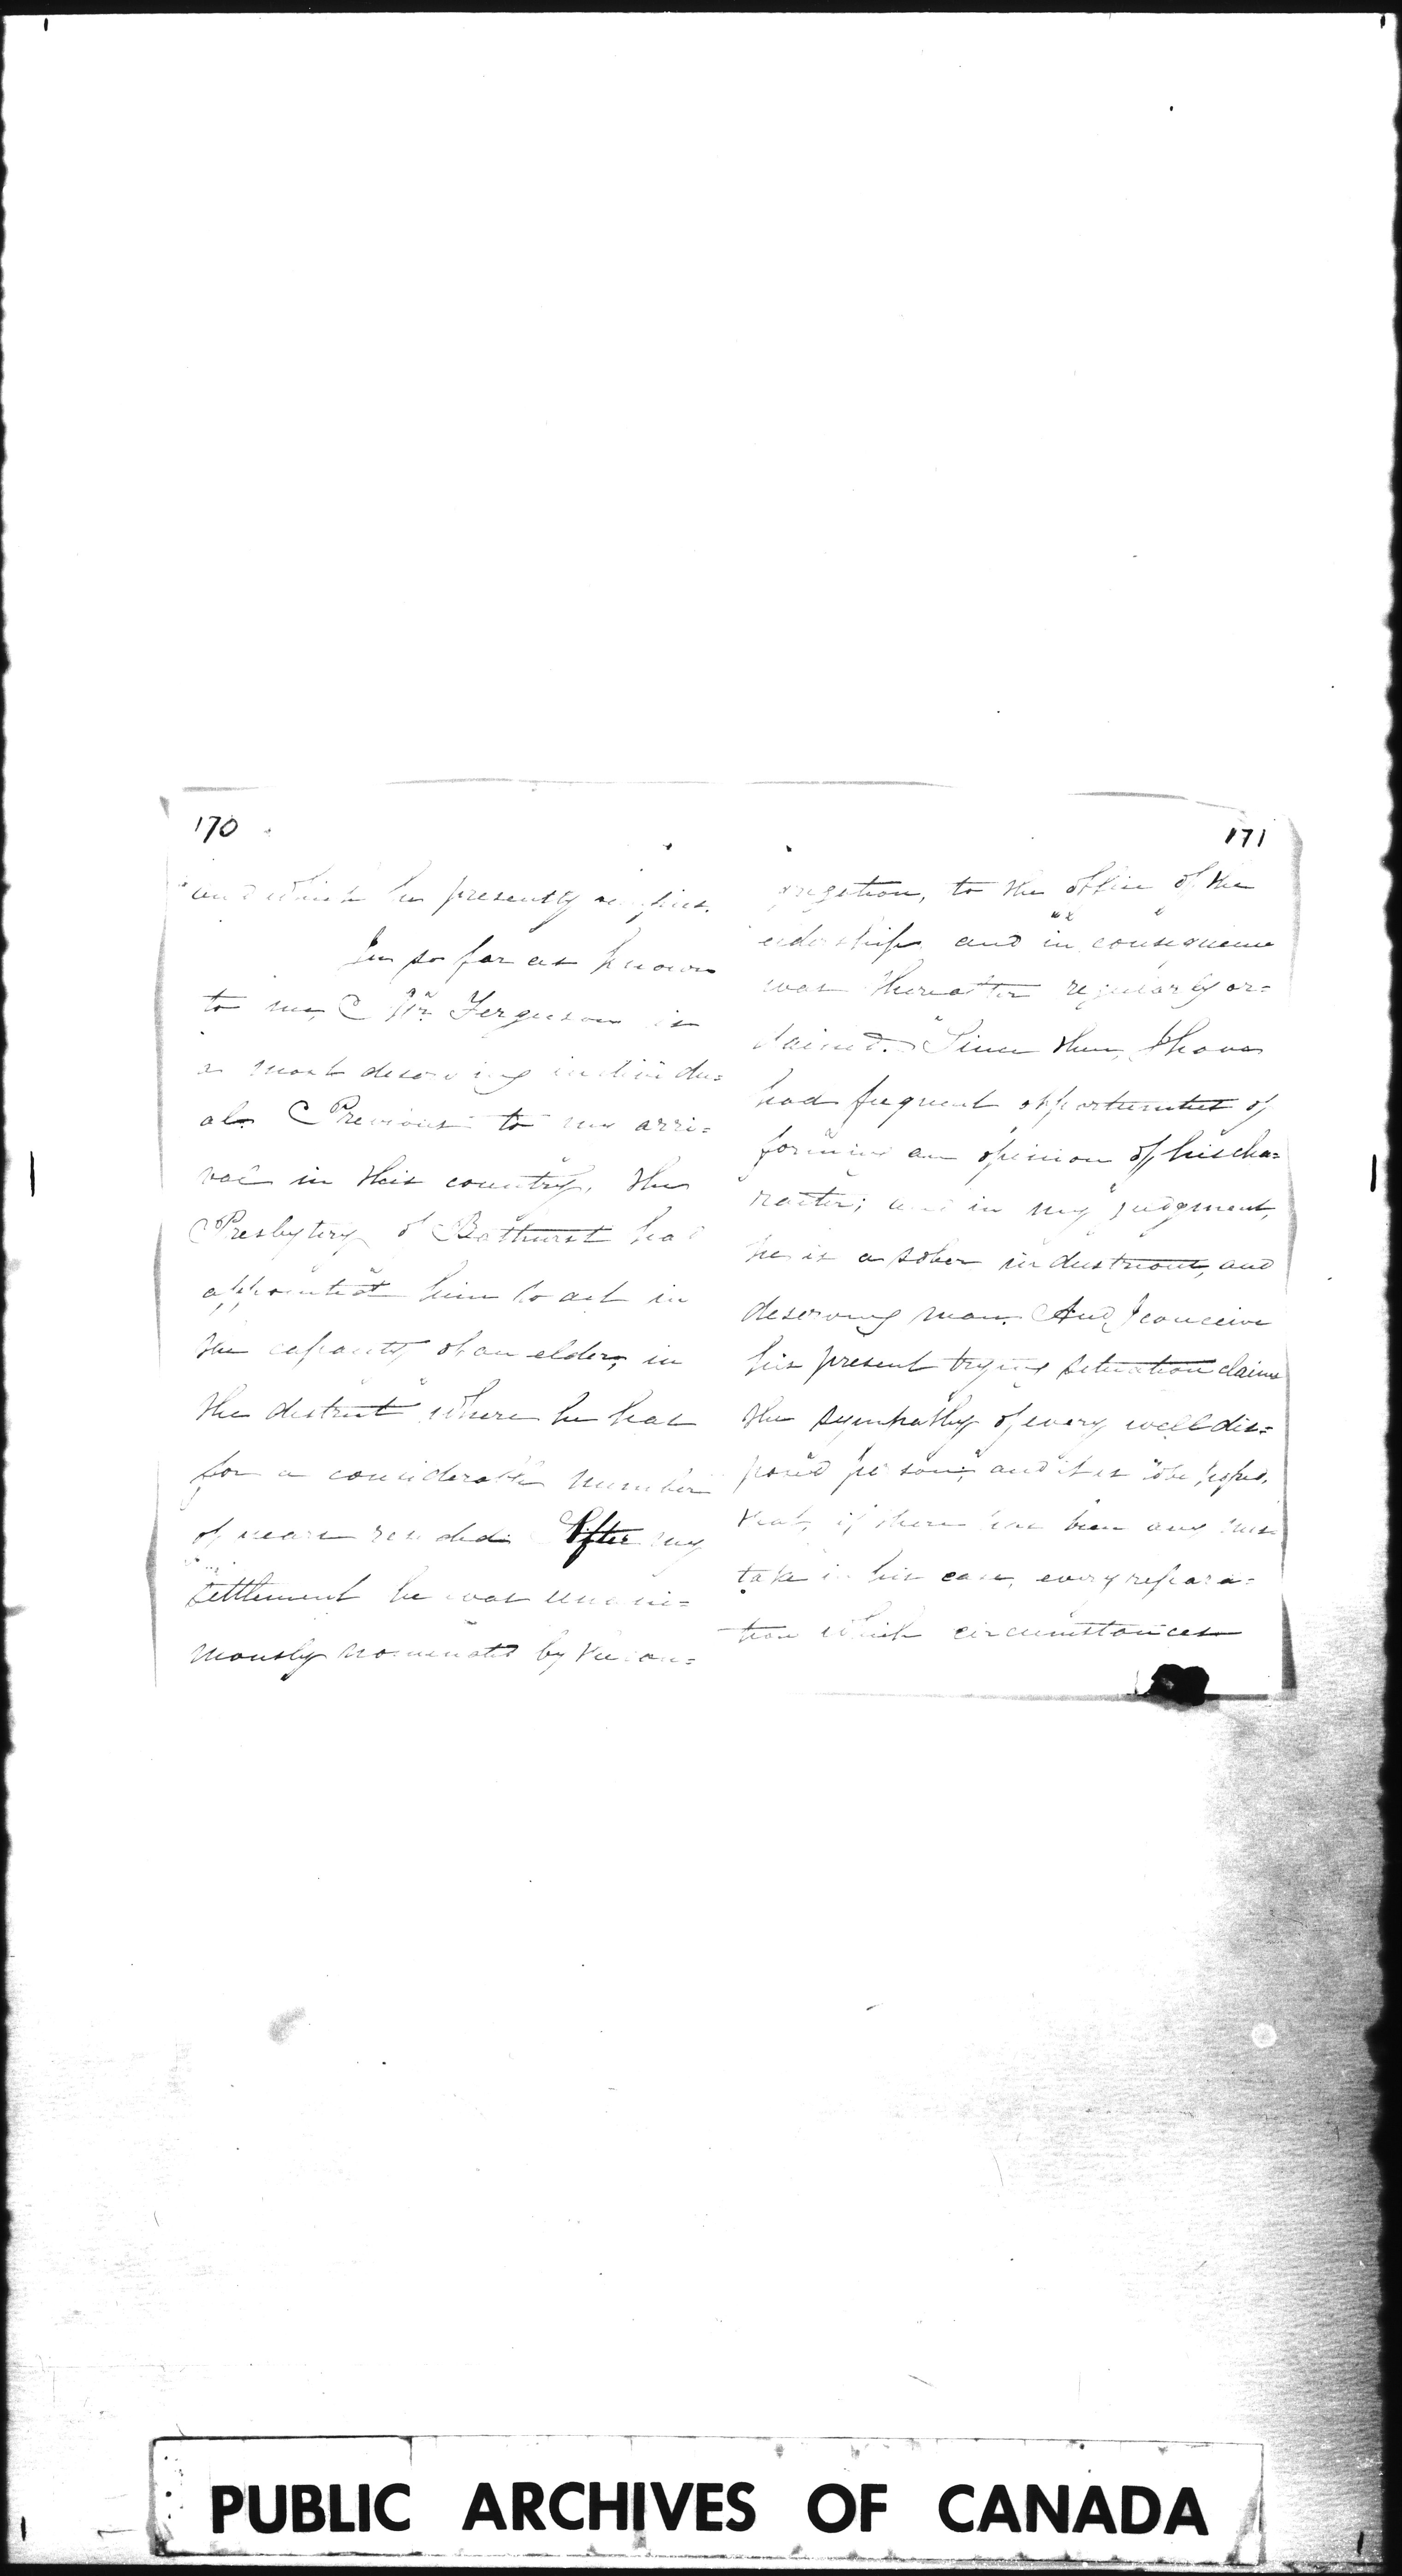 170
and which he presently occupies.
In so far as known
to me, Mr. Ferguson is
a most deserving individu=
al. Previous to my arri=
val in this country, the
Presbytery of Bathurst had
appointed him to act in
the capacity of an elder, in
the district where he had
for a considerable number
of years resided. After my
settlement he was unani=
mously nominated by the con=
171
gregation, to the office of the
eldership and in consequence
was thereafter regularly or=
dained. Since then, I have
had frequent opportunities of
forming an opinion of his cha=
racter; and in my judgment,
he is a sober industrious, and
deserving man. And I conceive
his present trying situation claims
the sympathy of every well dis=
posed person, and it is to be hoped,
that, if there has been any mis
take in his case, every repara=
tion which circumstances
PUBLIC ARCHIVES OF CANADA